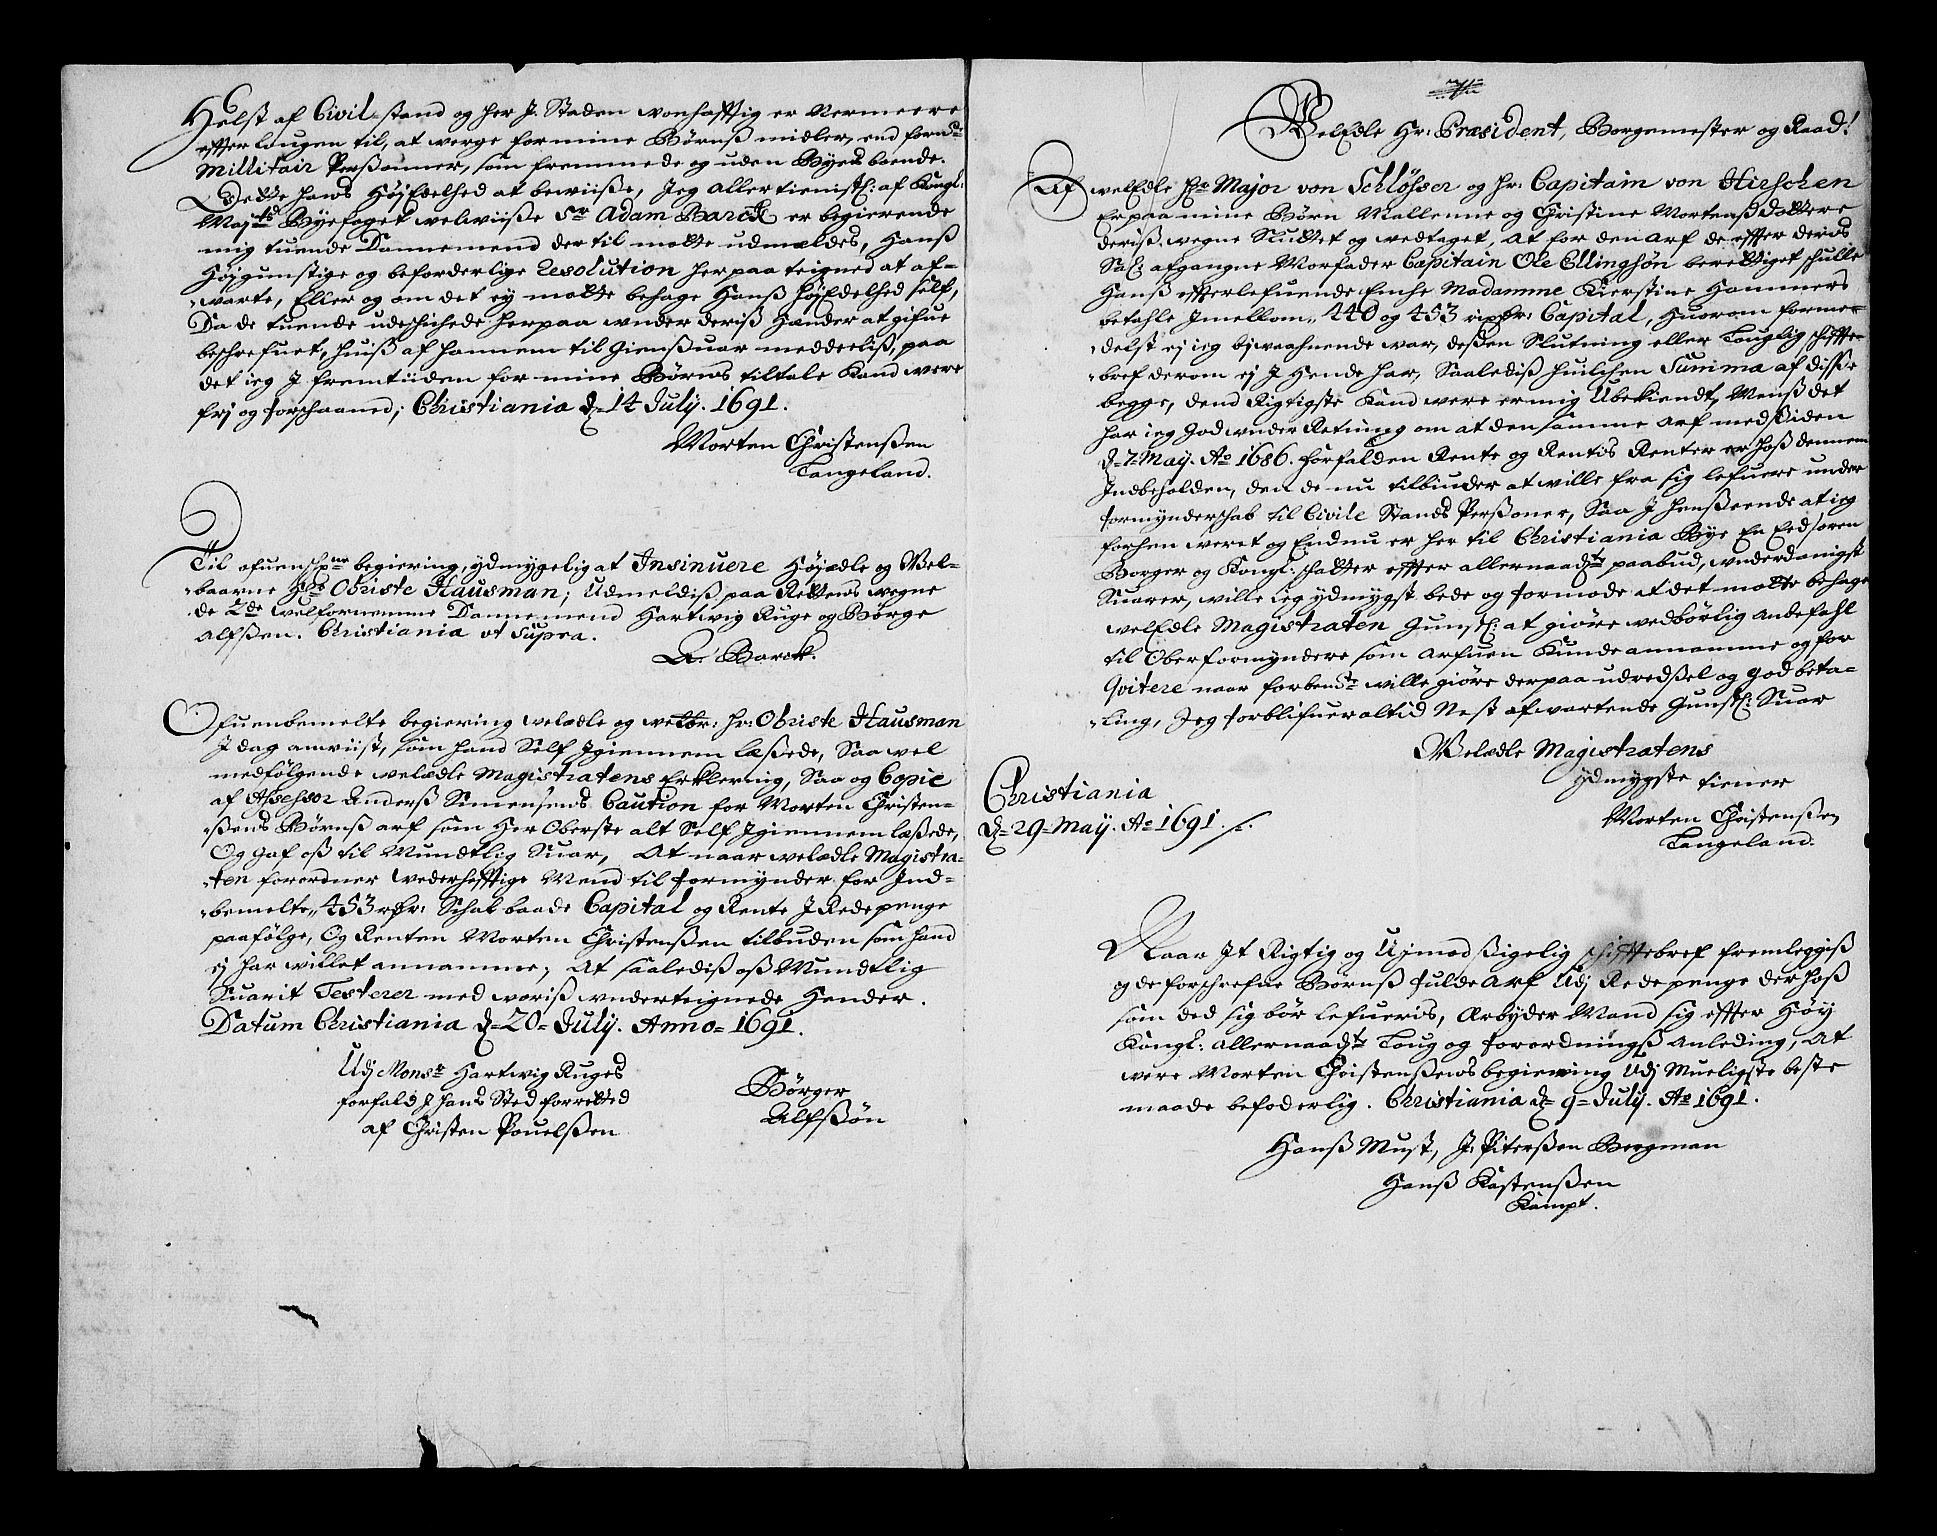 Helst af Civil stand og her J. Staden wonhafftig er Nermeere
effter lougen til, at werge for mine Børnß midler, end forn:
Millitair Perßonner, som fremmede og uden Byens boende.
Dette hans HøjEdelhed at bewiiße, Jeg allertienistl: af Kongl:
Maj:ts Byefoget welwiiße Sr Adam Barck er begierende
mig tuende Dannemend der til motte udmeldes, Hanß
Højgunstige og beforderlige Resolution herpaa teigned at af-
warte, Eller og om det ey motte behage Hanß HøjEdelhed self,
Da de tuende udeschichede herpaa under deriß Hænder at gifue
beschrefuet, huiß af hannem til Gienßuar meddeeliß, paa
det ieg J fremtiiden for mine Børns tiltale kand were
frj og forschaaned; Christiania d. 14 July. 1691.
Morten Christenßen
Langeland.
Til ofuensch: begiering ydmygelig at Insinuere Høyædle og Wel-
baarne Hr Obriste Hausman; Udmeldiß paa Rettens wegne
de 2de welfornemme Dannemend Hartwig Ruge og Børge
Alfßen. Christiania ut Supra.
A: Barck.
Ofuenbemelte begiering welædle og welbr: hr: Obriste Hausman
J dag anwiist, som hand Self Jgiennem læßede, Saa wel
medfølgende welædle Magistratens Erklering, Saa og Copie
af Assessor Anderß Simensens Caution for Morten Christen-
ßens Børnß arf som Her Oberste alt Self Jgiennem læßede,
Og gaf oß til Mundtlig Suar, At naar welædle Magistra-
ten forordner wederhefftige Mend til formynder for Ind-
bemelte 453 rdr: Schal baade Capital og Rente J Rede penge
paafølge, Og Renten Morten Christenßen tilbuden som hand
ej har willet annamme, At saalediß oß Mundtlig
Suarit Testerer med woriß underteignede Hender.
Datum Christiania d. 20 July. Anno 1691.
Udj Monsr Hartwig Ruges
forfald J hans Sted forretted
af Christen Pouelßen
Børger
Alfßøn
WelEdle Hr: Præsident, Borgemester og Raad!
Af welEdle Hr Major von Schlösser og hr: Capitain von Hirschen
Er paa mine Børn Mallenne og Christine Mortenß Dottere
deriß wegne Sluttet og wedtaget, At for den arf de effter deris
Sal: afgangne Morfader Capitain Ole Ellingsøn berettiget schulle
Hanß effterlefuende Enche Madamme Kierstine Hammers
betahle Jmellom 440 og 453 rixdr: Capital, Huorom forme-
delst ej ieg bjwaahnende war, deßen Slutning eller Louglig schiffte-
bref derom ej J Hende har, Saalediß huilchen Summa af disse
begge, dend Rigtigste kand were er mig Ubekiendt, Menß det
har ieg God under Retning om at den samme arf med siden
d. 7 May. Ao 1686. forfalden Rente og Rentis Renter er hoß dennem
Indbeholden, den de nu tilbiuder at wille fra sig lefuere under
formynderschab til Civile Stands Perßoner, Saa J henßeende at ieg
forhen weret og Endnu er her til Christiania Bye En Eedsoren
Borger og Kongl: schatter effter allernaadte paabud, underdanigst
Suarer, wille ieg ydmygst bede og formode at det motte behage
welEdle Magistraten Gunstl: at giøre wedbørlig andefahl
til Oberformyndere som arfuen kunde annamme og for
Qvitere naar forbente wille giøre derpaa udredßel og god beta-
ling, Jeg forblifuer altid Nest afwartende Gunstl: Suar
Welædle Magistratens
ydmygste tiener
Morten Christenßen
Langeland.
Christiania
d. 29 May. Ao 1691.
Naar Jt Rigtig og Ujmodßigelig schifftebref fremleggiß
og de forschrefne Børnß fulde Arf Udj Rede penge der hoß
som ded sig bør lefueris, Arbyder Mand sig effter Høy
Kongl: allernaadte Loug og forordningß anleding, At
were Morten Christenßens begiering Udj Mueligste beste
maade befoderlig. Christiania d. 9 July. Ao 1691.
Hanß Must, J: Piterßen Bergman
Hanß Kastenßen
Kampt.